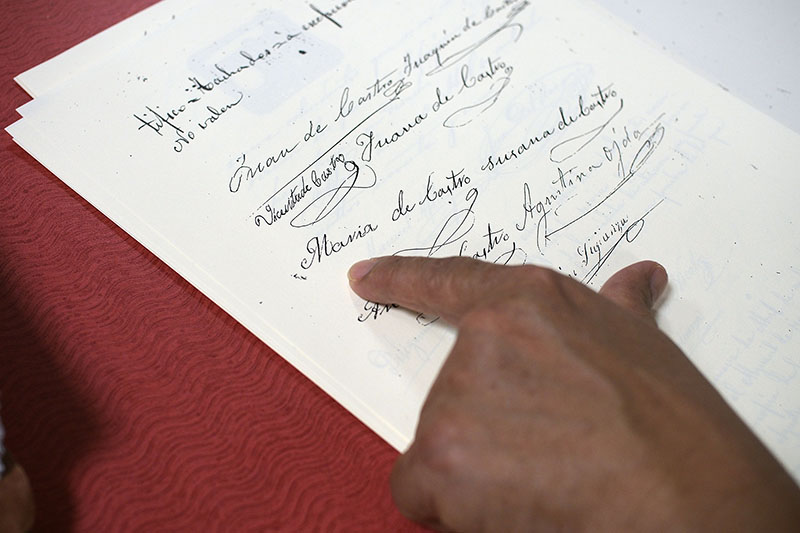 tifico = Tachados = a
No valen
Juan de Castro Juaquin de Castro
Vicente de Castro Juana de Castro
Maria de Castro susana de Castro
Castro Agustina Ojeda